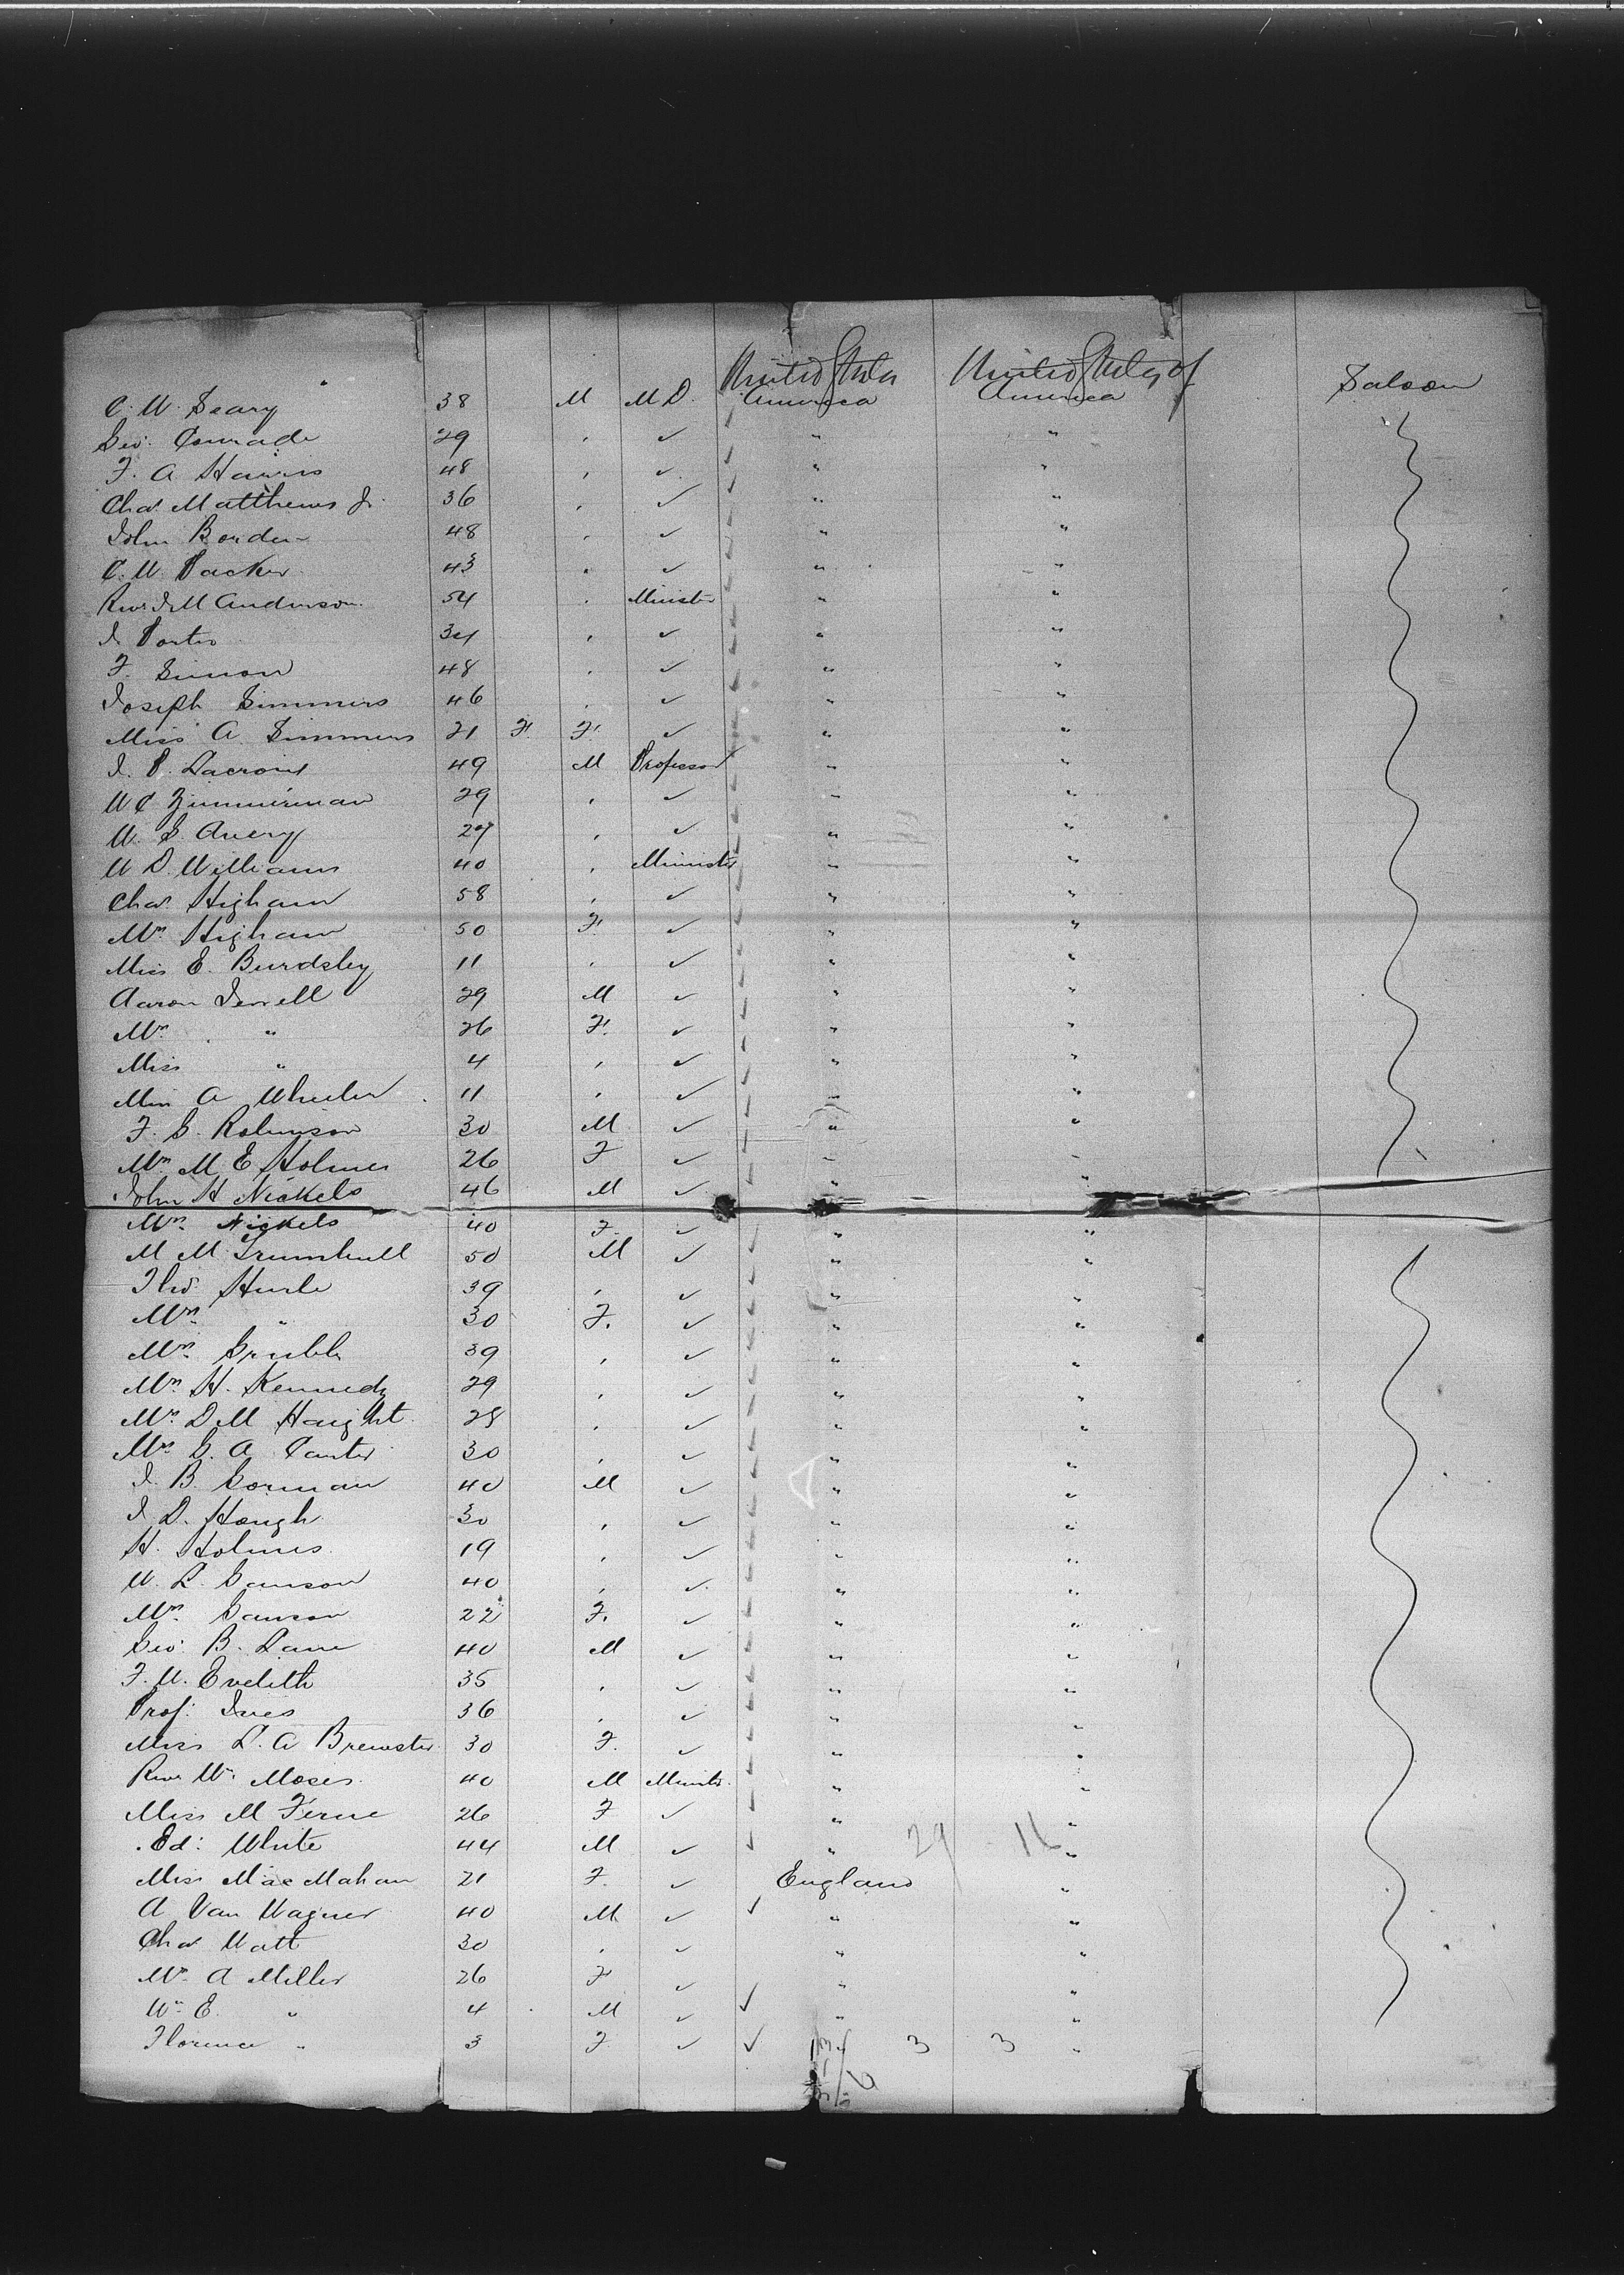 C. W. Seary 38 M M.D. United States America United States of America Saloon
Geo: Conrade 29 , ✓ " "
F. A 48 , ✓ " "
Chas Matthews Jr. 36 , ✓ " "
John Borden 48 , ✓ " "
C. W. Packer 43 " ✓ " "
Revd J M Anderson 54 . Minister " "
J. Porter 34 , ✓ " "
F. Simon 48 . ✓ " "
Joseph Simmers 46 . ✓ " "
Miss A. Simmers 21 F. F. ✓ " "
J. P. Lacroix 49 M Professor " "
W C Zimmerman 29 , ✓ " "
W. S. Avery 29 , ✓ " "
W D. Williams 40 , Minister " "
Chas Higham 58 , ✓ " "
Mrs Higham 50 F. ✓ " "
Miss E. Burdsley 11 . ✓ " "
Aaron Jewell 29 M ✓ " "
Mrs " 26 F. ✓ " "
Miss " 4 , ✓ " "
Miss A Wheeler 11 , ✓ " "
F. G. Robinson 30 M ✓ " "
Mrs M E Holmes 26 F ✓ " "
John H Nickels 46 M ✓ " "
Mrs Nickels 40 F. ✓ " "
M M Trumbull 50 M ✓ " "
Theo Hurle 39 , ✓ " "
Mrs " 30 F. ✓ " "
Mrs Grubb 39 , ✓ " "
Mrs H. Kennedy 29 , ✓ " "
Mrs D M Haight 28 , ✓ " "
Mrs G. A Canter 30 , ✓ " "
J. B. Gorman 40 M ✓ " "
J D. Hough 30 , ✓ " "
H. Holmes 19 , ✓ " "
W. L. Sanson 40 , ✓ " "
Mrs Sanson 22 F. ✓ " "
Geo: B. Lane 40 M ✓ " "
F. W. Evelith 35 , ✓ " "
Prof: Ives 36 , ✓ " "
Miss L. A Brewster 30 F. ✓ " "
Rev Wm Moses 40 M Minister " "
Miss M Ferne 26 F ✓ " "
Ed: White 44 M ✓ " 29 "
Miss MacMahan 21 F. ✓ England "
A Van Wagner 40 M ✓ ✓ " "
Chas Watt 30 , ✓ " "
Mrs A Miller 26 F ✓ " "
Wm E. " 4 M ✓ ✓ " "
Florence " 3 F ✓ ✓ " 3 3 "